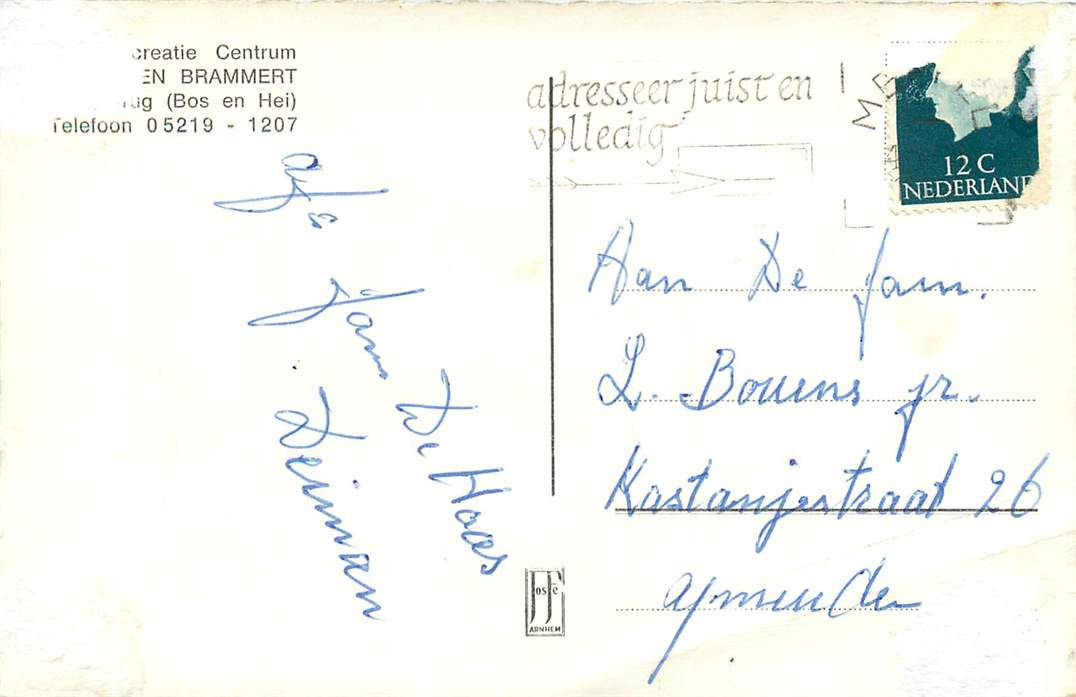 creatie Centrum
EN BRAMMERT
ug (Bos en Hei)
Telefoon 05219 - 1207
adresseer juist en
volledig
12 C
NEDERLAND
Aan De fam.
L. Bouens jr.
Kastanjestraat 26
afz
fam De Haas
Deiman
JosPé
ARNHEM